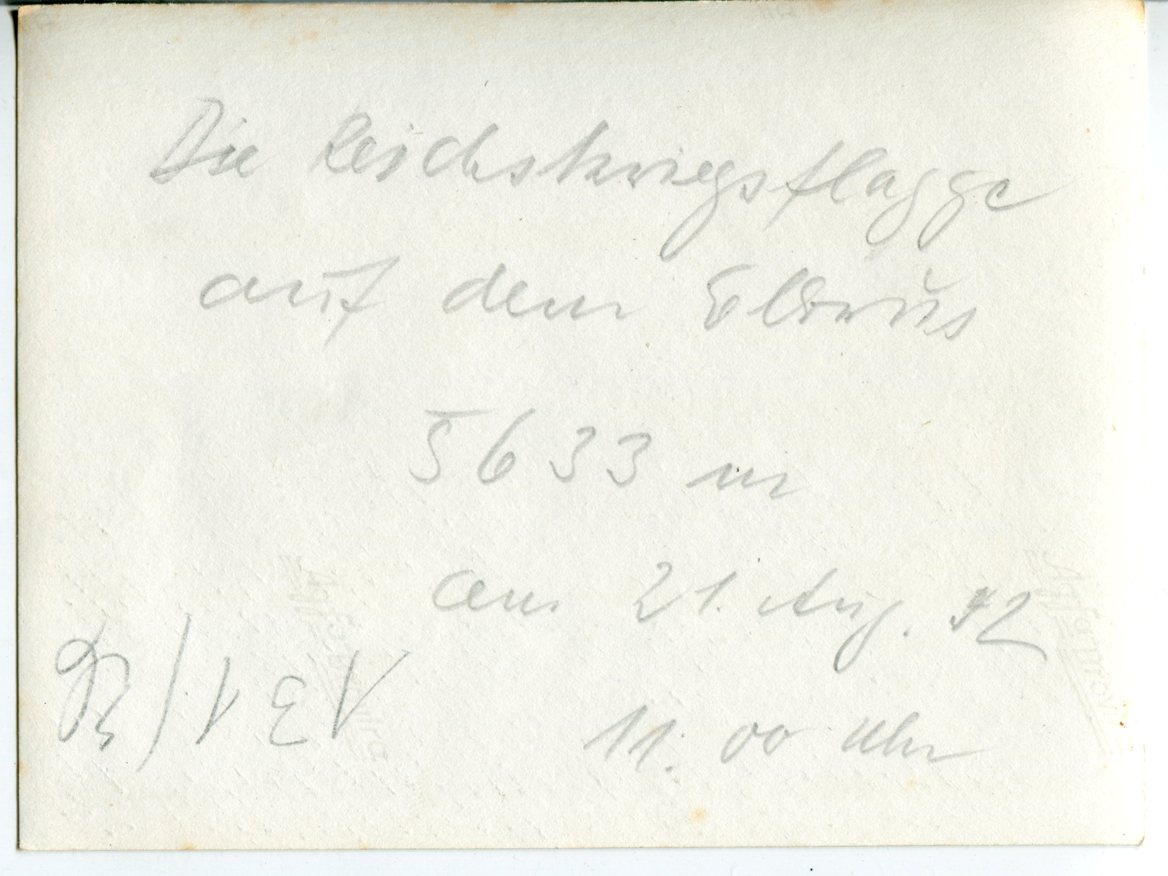 Die Reichskriegsflagge
auf dem Elbrus
5633 m
am 21. Aug. 42
11.00 Uhr